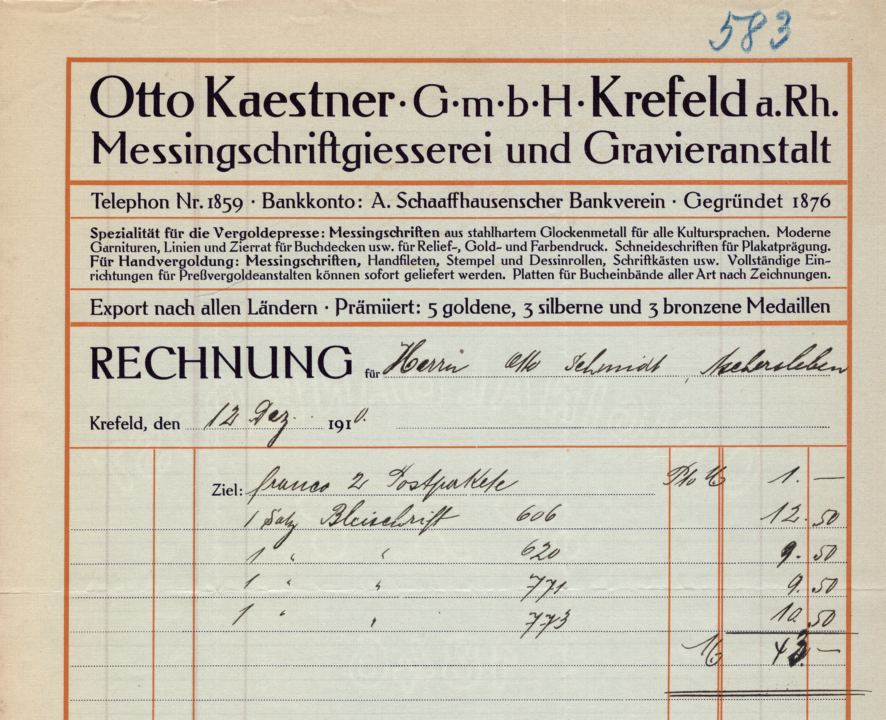 583
Otto Kaestner · G·m·b·H · Krefeld a.Rh.
Messingschriftgiesserei und Gravieranstalt
Telephon Nr. 1859 · Bankkonto: A. Schaaffhausenscher Bankverein · Gegründet 1876
Spezialität für die Vergoldepresse: Messingschriften aus stahlhartem Glockenmetall für alle Kultursprachen. Moderne
Garnituren, Linien und Zierrat für Buchdecken usw. für Relief-, Gold- und Farbendruck. Schneideschriften für Plakatprägung.
Für Handvergoldung: Messingschriften, Handfileten, Stempel und Dessinrollen, Schriftkästen usw. Vollständige Ein-
richtungen für Preßvergoldeanstalten können sofort geliefert werden. Platten für Bucheinbände aller Art nach Zeichnungen.
Export nach allen Ländern · Prämiiert: 5 goldene, 3 silberne und 3 bronzene Medaillen
RECHNUNG für Herrn Otto Schmidt, Aschersleben
Krefeld, den 12 Dez. 1910.
Ziel: franco 2 Postpakete Pto M 1. —
1 Satz Bleischrift 606 12.50
1 " " 620 9.50
1 " " 771 9.50
1 " " 773 10.50
M 43. —